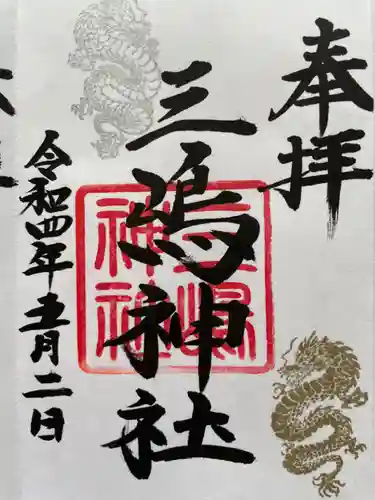 奉拝
三嶋神社
三嶋神社
令和四年五月二日